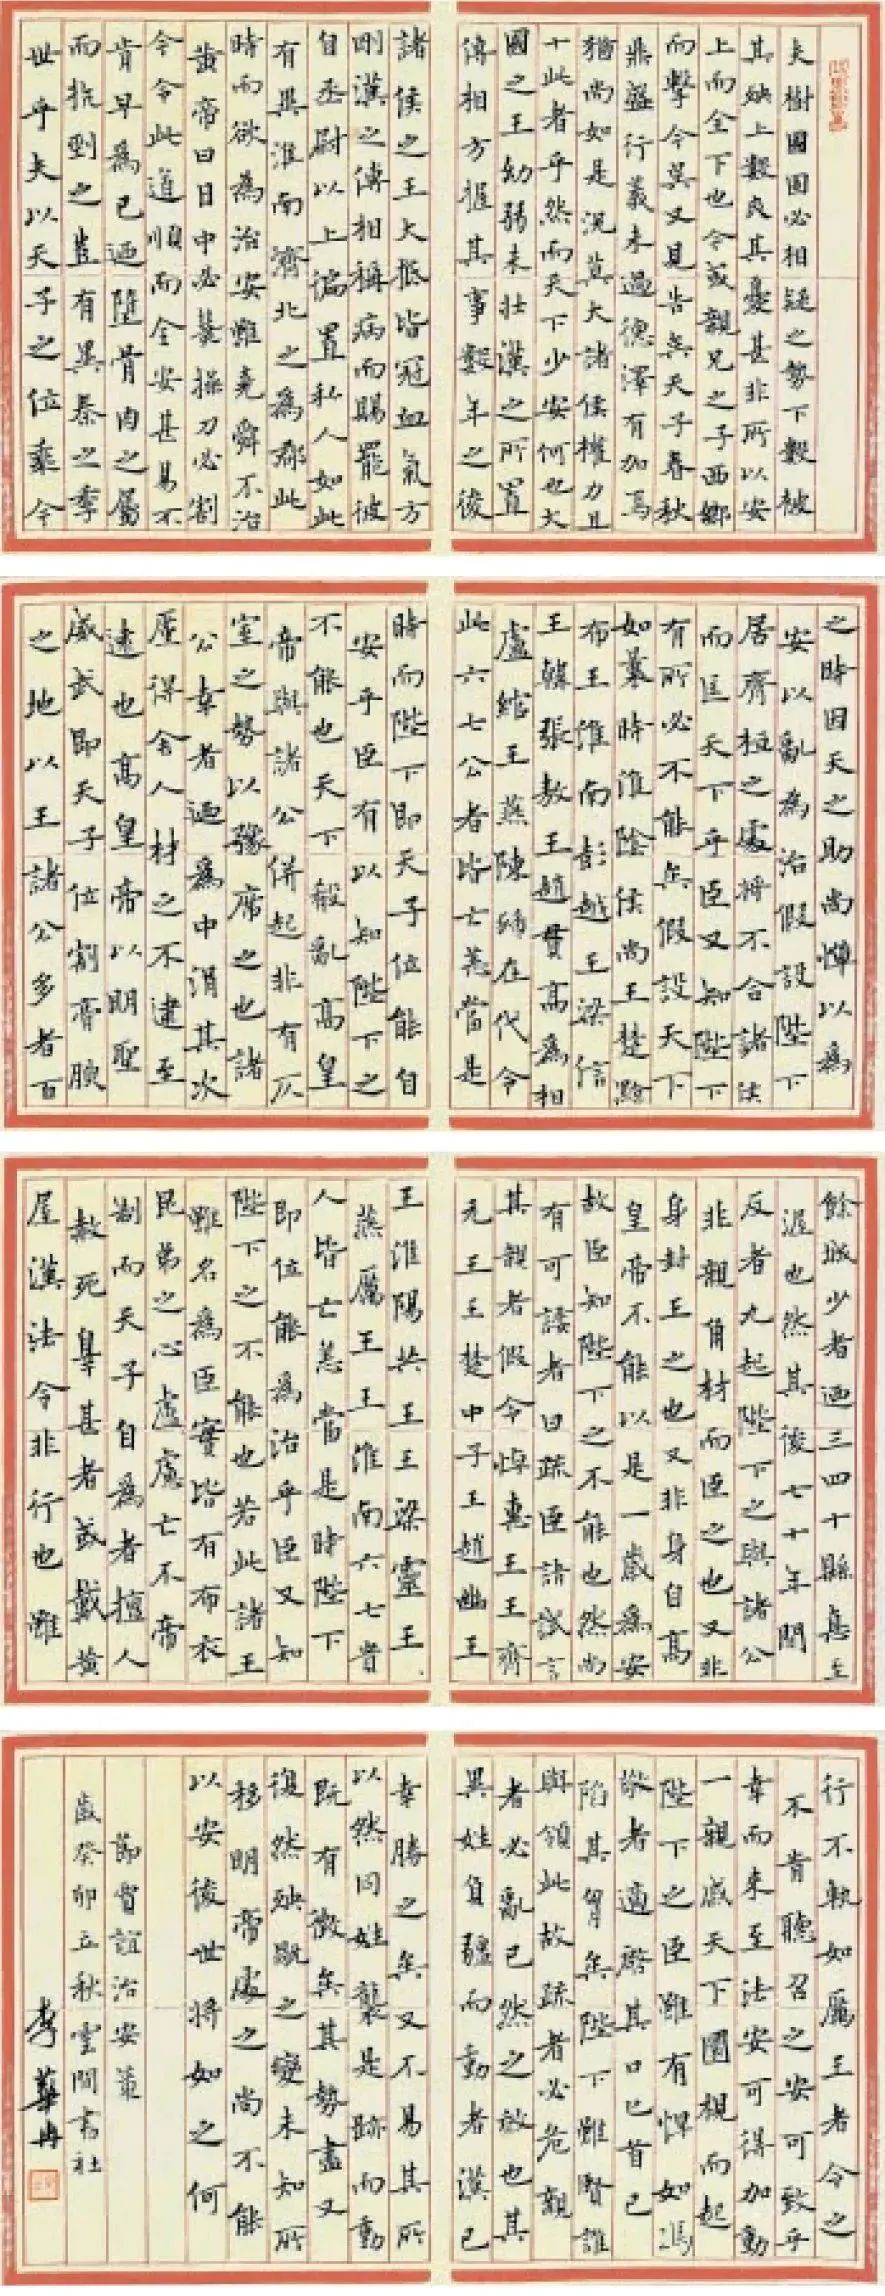 夫樹國固必相疑之勢下數被
其殃上數爽其憂甚非所以安
上而全下也今或親兄之子西鄉
而擊今吳又見告矣天子春秋
鼎盛行義未過德澤有加焉
猶尚如是況莫大諸侯權力且
十此者乎然而天下少安何也大
國之王幼弱未壯漢之所置
傅相方握其事數年之後
諸侯之王大抵皆冠血氣方
剛漢之傅相稱病而賜罷彼
自丞尉以上徧置私人如此
有異淮南濟北之為邪此
時而欲為治安雖堯舜不治
黃帝曰日中必熭操刀必割
今令此道順而全安甚易不
肯早為已迺墮骨肉之屬
而抗剄之豈有異秦之季
世乎夫以天子之位乘今
之時因天之助尚憚以為
安以亂為治假設陛下
居齊桓之處將不合諸侯
而匡天下乎臣又知陛下
有所必不能矣假設天下
如曩時淮陰侯尚王楚黥
布王淮南彭越王梁信
王韓張敖王趙貫高為相
盧綰王燕陳豨在代令
此六七公者皆亡恙當是
時而陛下即天子位能自
安乎臣有以知陛下之
不能也天下殽亂高皇
帝與諸公併起非有仄
室之勢以豫席之也諸
公幸者迺為中涓其次
廑得舍人材之不逮至
遠也高皇帝以明聖
威武即天子位割膏腴
之地以王諸公多者百
餘城少者迺三四十縣悳至
渥也然其後七十年間
反者九起陛下之與諸公
非親角材而臣之也又非
身封王之也又非身自高
皇帝不能以是一歲為安
故臣知陛下之不能也然尚
有可諉者曰疏臣請試言
其親者假令悼惠王王齊
元王王楚中子王趙幽王
王淮陽共王王梁靈王
燕厲王王淮南六七貴
人皆亡恙當是時陛下
即位能為治乎臣又知
陛下之不能也若此諸王
雖名為臣實皆有布衣
昆弟之心慮亡不帝
制而天子自為者擅人
赦死辠甚者或戴黃
屋漢法令非行也雖
行不軌如厲王者令之
不肯聽召之安可致乎
幸而來至法安可得加動
一親戚天下圜視而起
陛下之臣雖有悍如馮
敬者適啟其口匕首已
陷其胷矣陛下雖賢誰
與領此故疏者必危親
者必亂已然之效也其
異姓負彊而動者漢已
幸勝之矣又不易其所
以然同姓襲是跡而動
既有徵矣其勢盡又
復然殃旤之變未知所
移明帝處之尚不能
以安後世將如之何
節賈誼治安策
歲癸卯立秋雲間書社
李華